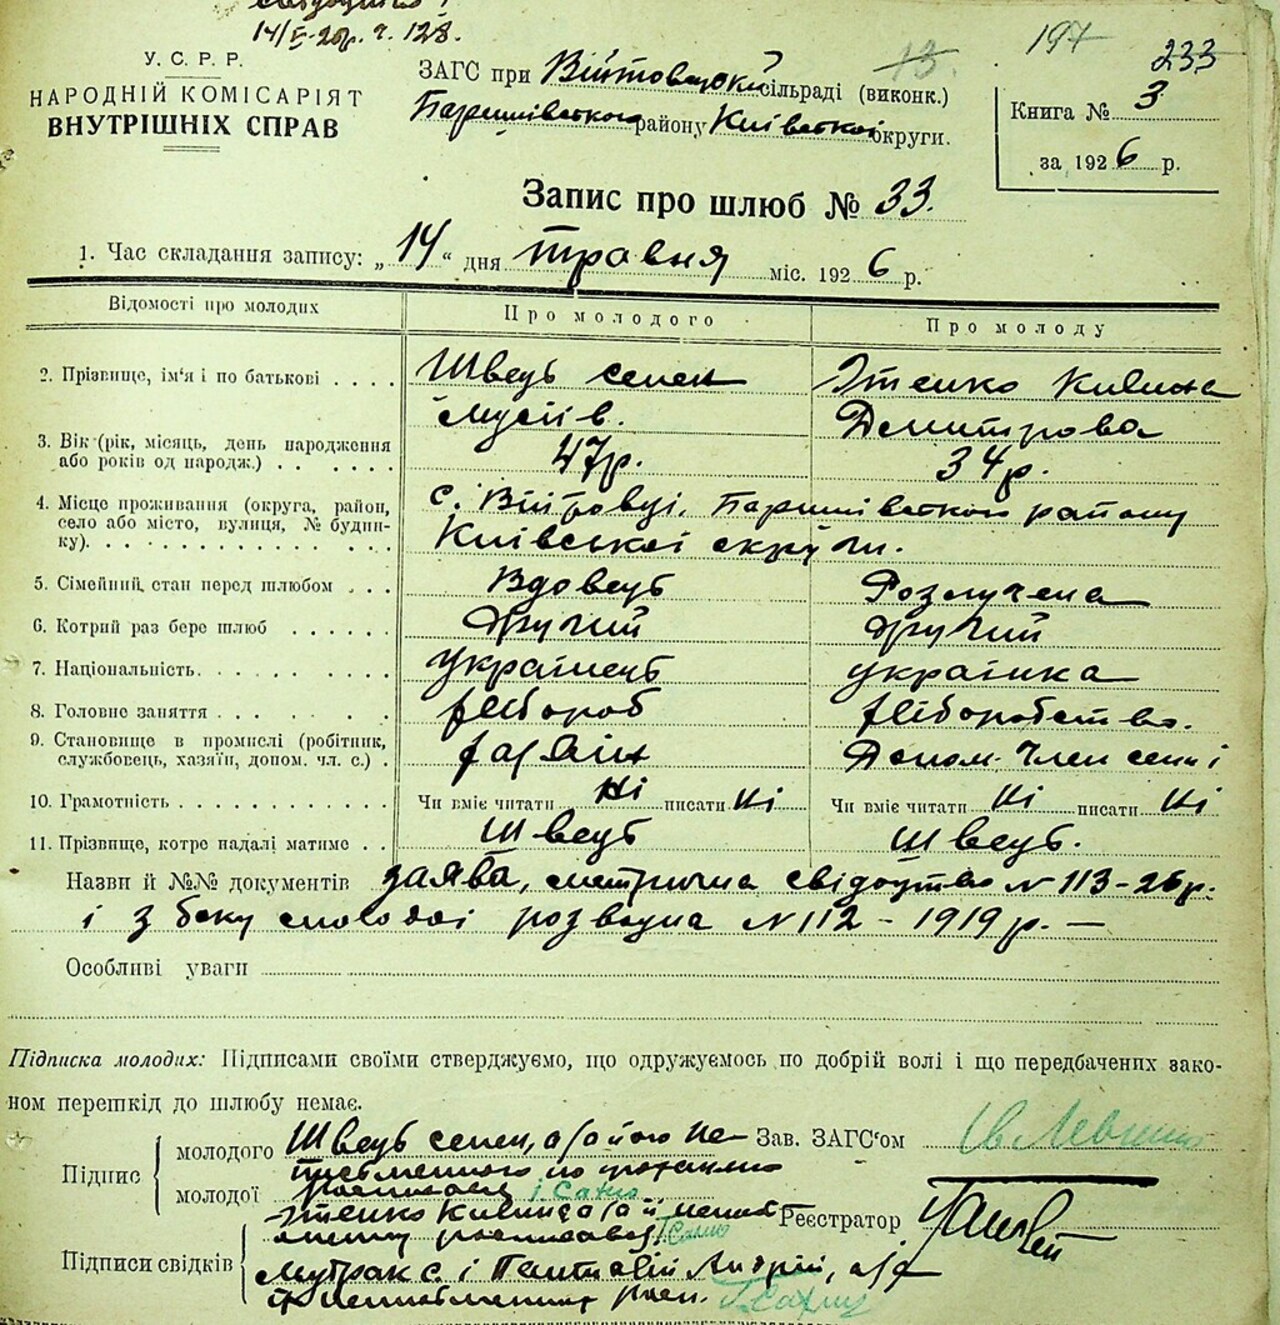 14/V-26р. ч. 128.
197
233
13.
У. С. Р. Р.
НАРОДНІЙ КОМІСАРІЯТ
ВНУТРІШНІХ СПРАВ
ЗАГС при Війтовецькій сільраді (виконк.)
Баришівського району Київської округи.
Книга № 3
за 1926 р.
Запис про шлюб № 33.
1. Час складання запису: „14“ дня травня міс. 1926 р.
Відомості про молодих Про молодого Про молоду
2. Прізвище, ім'я і по батькові . . . . Швець Семен Ітенко Килина
Мусіїв. Демитрова
3. Вік (рік, місяць, день народження
або років од народж.) . . . . . . 47р. 34р.
4. Місце проживання (округа, район,
село або місто, вулиця, № будин-
ку). . . . . . . . . . . . . . .
с. Війтовці, Баришівського району
Київської округи.
5. Сімейний стан перед шлюбом . . . Вдовець Розлучена
6. Котрий раз бере шлюб . . . . . . Другий Другий
7. Національність. . . . . . . . . українець українка
8. Головне заняття . . . . . . хлібороб хліборобство.
9. Становище в промислі (робітник,
службовець, хазяїн, допом. чл. с.) . хазяїн Допом. член семі
10. Грамотність . . . . . . . . . . . Чи вміє читати Ні писати Ні Чи вміє читати Ні писати Ні
11. Прізвище, котре надалі матиме . . Швець Швець.
Назви й №№ документів заява, метрична свідоцтво N 113-26р.
і з боку молодої розводна N 112 - 1919 р. —
Особливі уваги
Підписка молодих: Підписами своїми стверджуємо, що одружуємось по добрій волі і що передбачених зако-
ном перешкід до шлюбу немає.
Підпис
молодого Швець Семен, а за його не-
письменного по
молодої
Ітенко Килина а за її
Зав. ЗАГС'ом
Реєстратор
Підписи свідків
с. і Андрій, а за